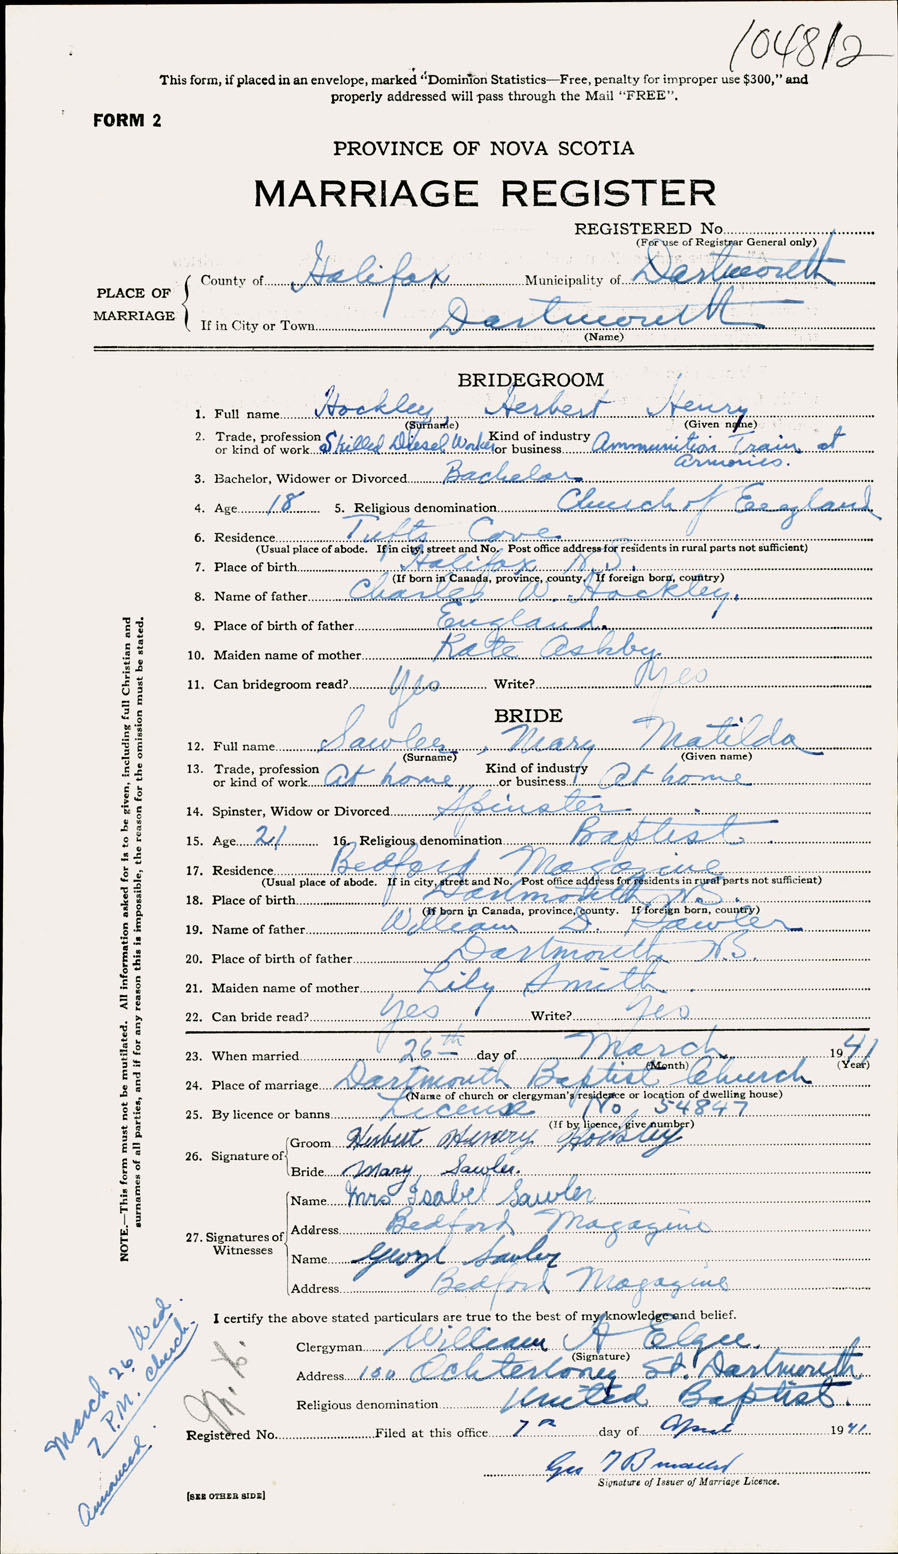 104812
This form, if placed in an envelope, marked "Dominion Statistics—Free, penalty for improper use $300," and
properly addressed will pass through the Mail "FREE".
FORM 2
PROVINCE OF NOVA SCOTIA
MARRIAGE REGISTER
REGISTERED No.
(For use of Registrar General only)
PLACE OF MARRIAGE
County of Halifax Municipality of Dartmouth
If in City or Town Dartmouth
(Name)
BRIDEGROOM
1. Full name Hockley, Herbert Henry
(Surname) (Given name)
2. Trade, profession or kind of work Skilled Diesel Worker Kind of industry or business Ammunition Train at Armories.
3. Bachelor, Widower or Divorced Bachelor
4. Age 18 5. Religious denomination Church of England
6. Residence Tufts Cove
(Usual place of abode. If in city, street and No. Post office address for residents in rural parts not sufficient)
7. Place of birth Halifax N.S.
(If born in Canada, province, county. If foreign born, country)
8. Name of father Charles W. Hockley.
9. Place of birth of father England.
10. Maiden name of mother Kate Ashby.
11. Can bridegroom read? Yes Write? Yes
BRIDE
12. Full name Sawler, Mary Matilda
(Surname) (Given name)
13. Trade, profession or kind of work At home Kind of industry or business At home
14. Spinster, Widow or Divorced Spinster
15. Age 21 16. Religious denomination Baptist
17. Residence Bedford Magazine
(Usual place of abode. If in city, street and No. Post office address for residents in rural parts not sufficient)
18. Place of birth Dartmouth N.S.
(If born in Canada, province, county. If foreign born, country)
19. Name of father William D. Sawler
20. Place of birth of father Dartmouth N.S.
21. Maiden name of mother Lily Smith
22. Can bride read? Yes Write? Yes
23. When married 26th day of March 1941
(Month) (Year)
24. Place of marriage Dartmouth Baptist Church
(Name of church or clergyman's residence or location of dwelling house)
25. By licence or banns License No. 54847
(If by licence, give number)
26. Signature of
Groom Herbert Henery Hockley
Bride Mary Sawler.
27. Signatures of Witnesses
Name Mrs Isabel Sawler
Address Bedford Magazine
Name George Sawler
Address Bedford Magazine
I certify the above stated particulars are true to the best of my knowledge and belief.
Clergyman William A Elgee.
(Signature)
Address 100 Ochterloney St. Dartmouth
Religious denomination United Baptist.
Registered No. Filed at this office 7th day of April 1941
Geo
Signature of Issuer of Marriage Licence.
[SEE OTHER SIDE]
NOTE.—This form must not be mutilated. All information asked for is to be given, including full Christian and
surnames of all parties, and if for any reason this is impossible, the reason for the omission must be stated.
March 26 Wed.
7 P.M. Church.
Announced.